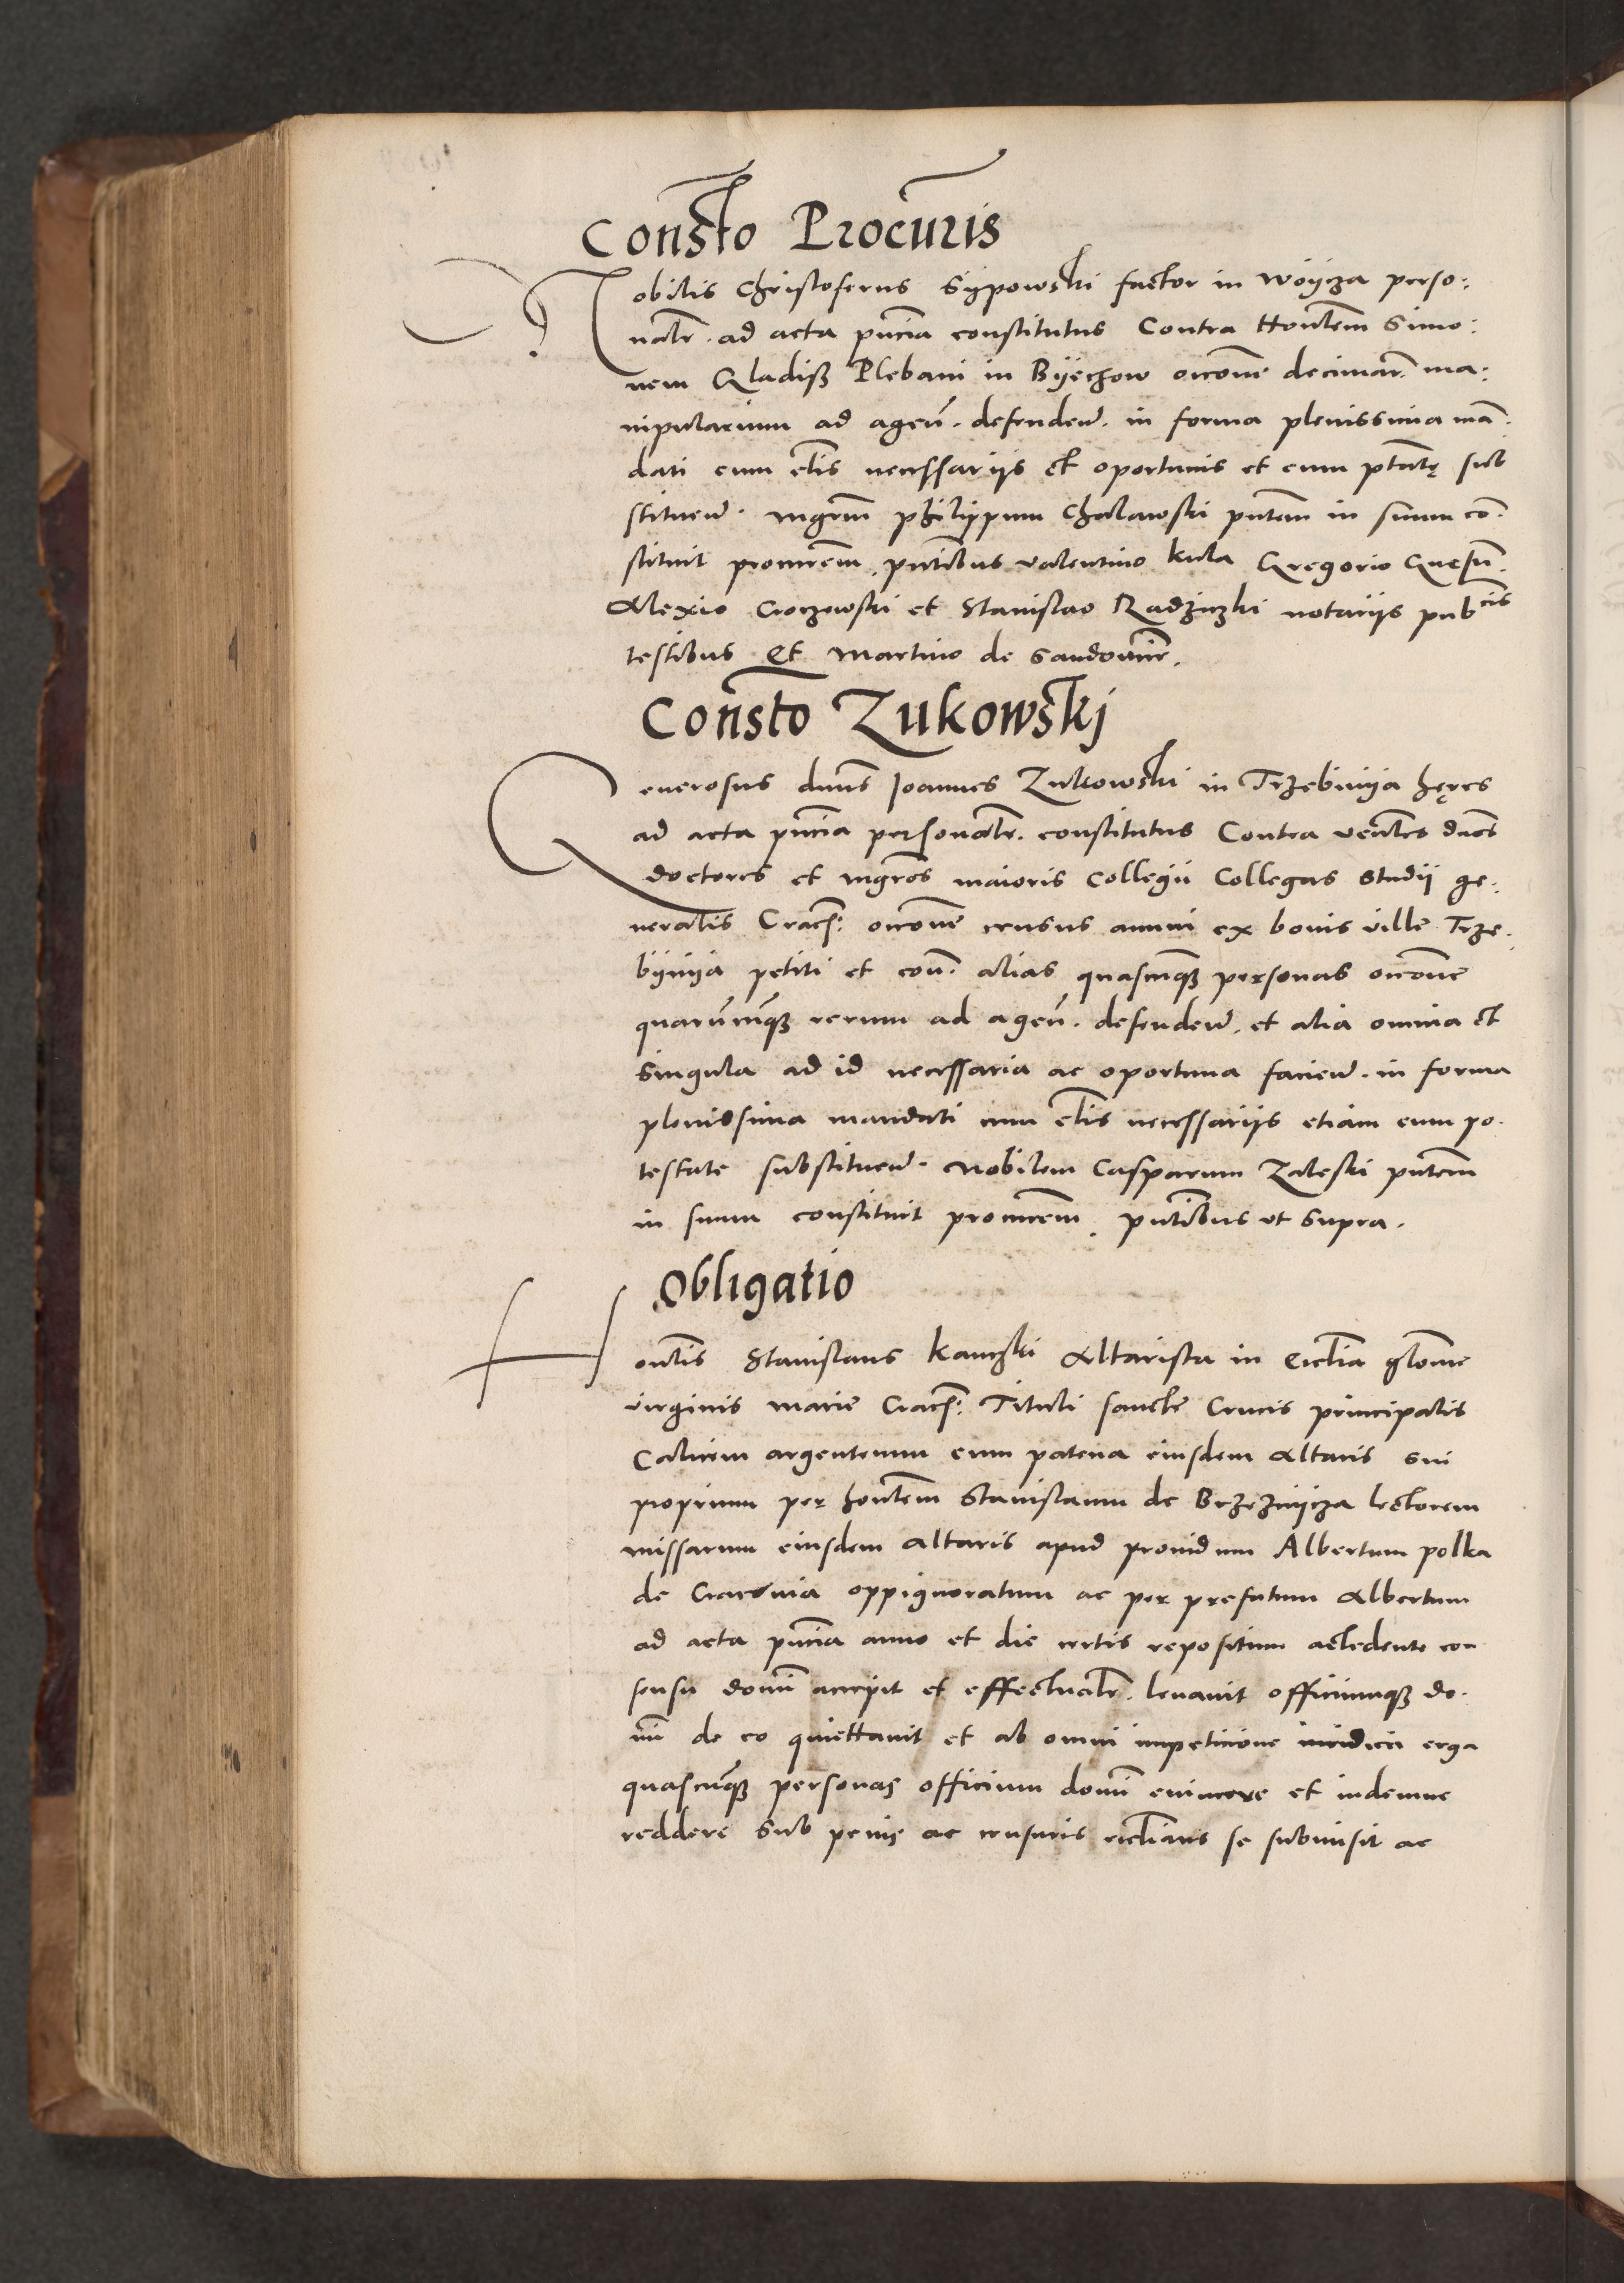 Consto Procuris
Nobilis Christoferus Sijpowski factor in Woijcza perso:
nalr. ad acta pncia constitutus Contra Honlem Simo:
nem Gladisz Plebani in Bijechow occone decimar. ma:
nipularium ad agen. defenden. in forma plenissima man
dati cum clis necessarijs et oportunis et cum ptate sub
stituen. Mgrm Philippum Chalawski pntem in suum co
stituit procurem. pntibus Valentino Kula Gregorio
Alexio Croczowski et Stanislao Radziczki notarijs pubcis
testibus Et Martino de Sandomir.
Consto Zukowskj
Generosus dnus Joannes Zukowski in Trzebinija heres
ad acta pncia personalr. constitutus Contra venles dnos
doctores et mgros maioris Collegii Collegas Studij ge:
neralis Cracn: occone census annui ex bonis ville Trze
bijnija petiti et con. alias quascunqz personas occone
quarumcunqz rerum ad agen. defenden. et alia omnia et
singula ad id necessaria ac oportuna facien. in forma
plenissima mandati cum clis necessarijs etiam cum po
testate substituen. Nobilem Casparum Zaleski pntem
in suum constituit procurem. pntibus ut supra.
Obligatio
Honlis Stanislaus Kamski Altarista in Ecclia glone
virginis marie Cracn: Tituli sancte Crucis principalis
Calicem argenteum cum patena eiusdem Altaris sui
proprium per honlem Stanislaum de Brzeznijcza lectorem
missarum eiusdem altaris apud providum Albertum polka
de Cracovia oppignoratum ac per prefatum Albertum
ad acta pncia anno et die certis repositum accedente con
sensu domini accepit et effectualr. levavit officiumqz do
mi de eo quiettavit et ab omni impeticione iuridici erga
quascunqz personas officium domi evincere et indemne
reddere sub penis ac censuris ecclianis se submisit ac